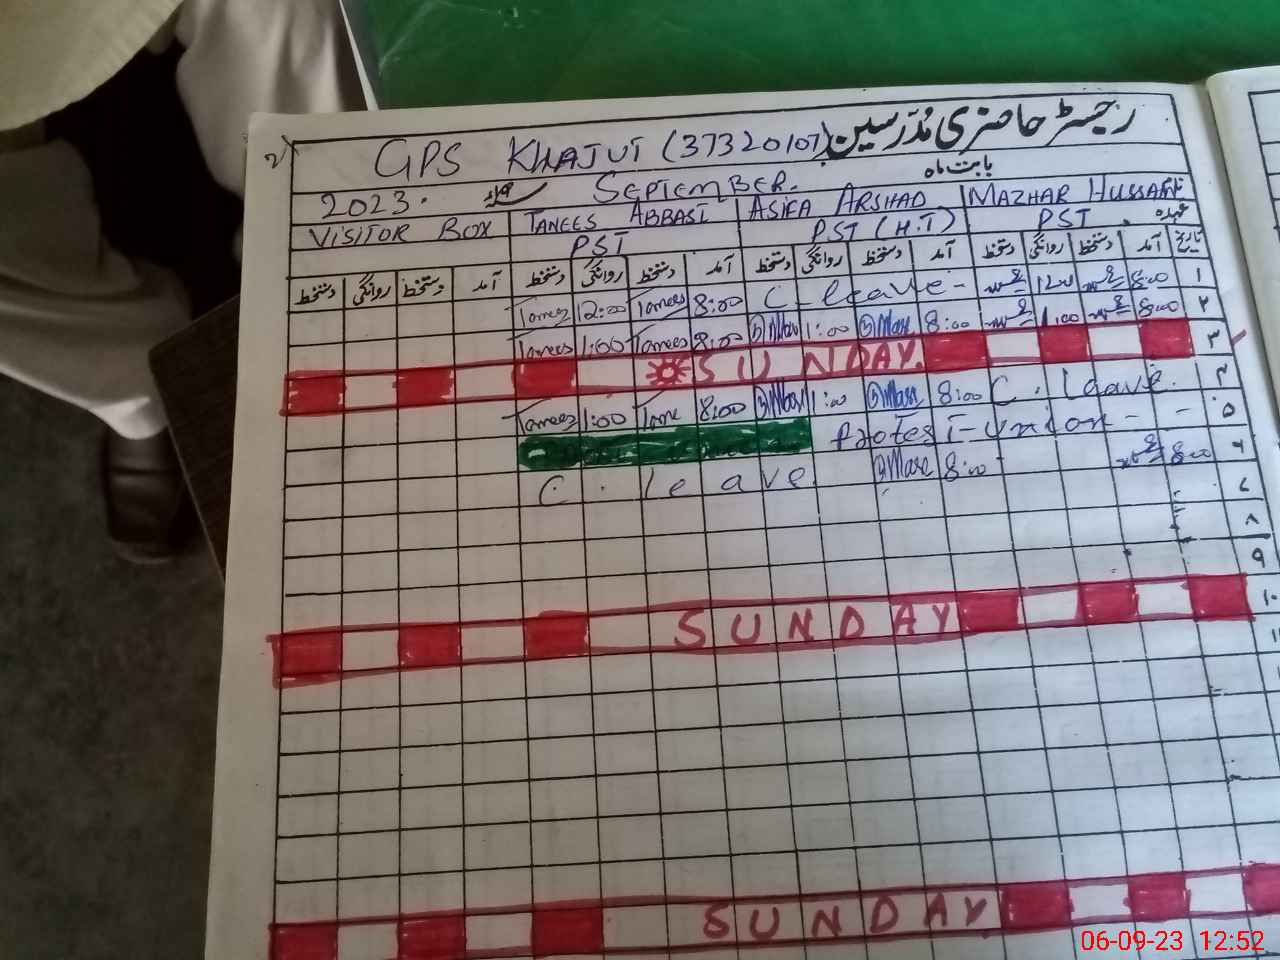 رجسٹر حاضری مُدَرسین
GPS KHAJUT (37320107)
بابت ماہ
SEPTEMBER.
2023.
VISITOR BOX TANEES ABBASI ASIFA ARSHAD MAZHAR HUSSAIN
PST PST (H.T) PST عہدہ
دستخط روانگی دستخط آمد دستخط روانگی دستخط آمد دستخط روانگی دستخط آمد دستخط روانگی دستخط آمد تاریخ
Tanees 12:00 Tanees 8:00 C-leave- 12:00 8:00 ۱
Tanees 1:00 Tanees 8:00 1:00 8:00 1:00 8:00 ۲
SUNDAY. ۳
Tanees 1:00 Tanees 8:00 1:00 8:00 C. leave. ۴
Protest-union - - ۵
C. leave 8:00 8:00 ۶
۷
۸
۹
SUNDAY ۱۰
SUNDAY
06-09-23 12:52